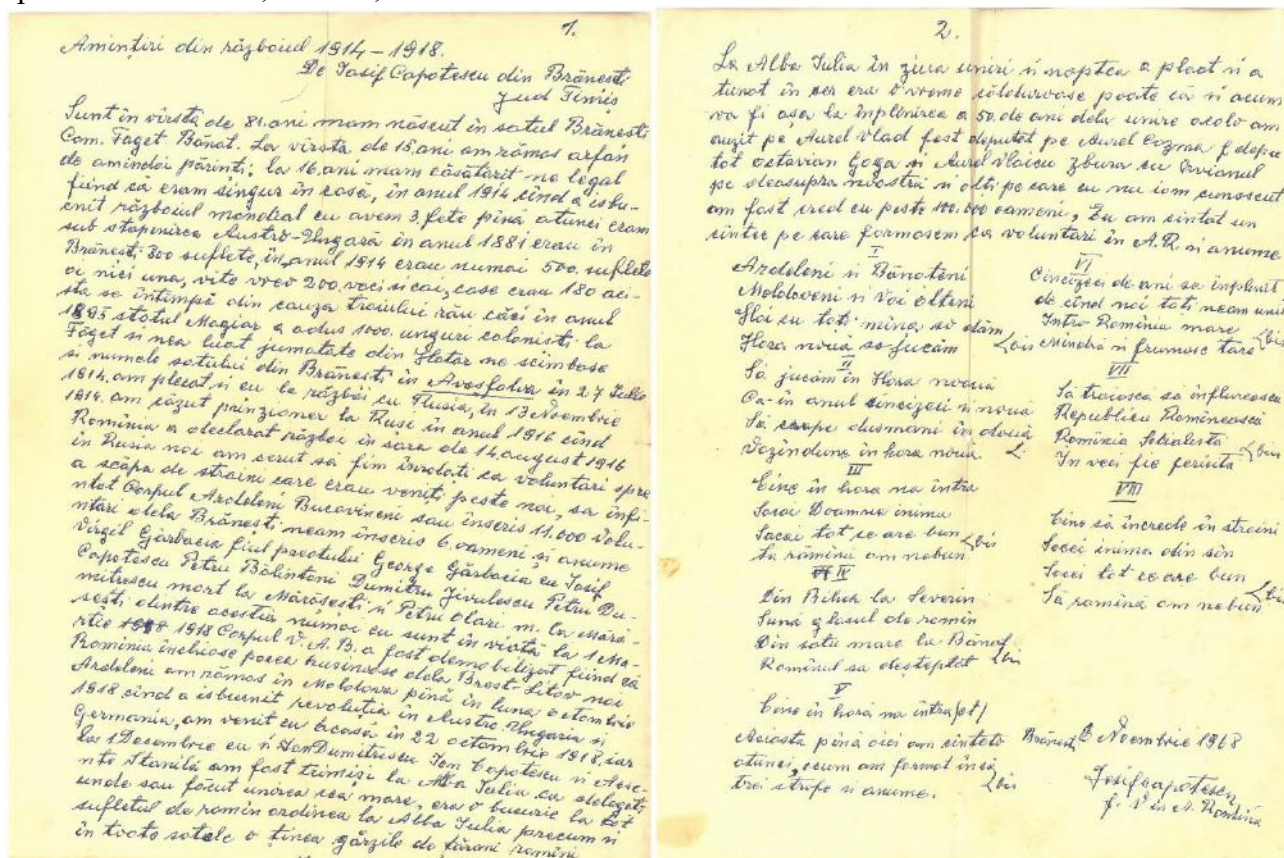 1.
Amintiri din războiul 1914-1918.
De Iosif Capotescu din Brănești
Jud Timiș
Sunt în vîrstă de 81. ani mam născut în satul Brănești
Com. Făget Bănat. La vîrsta de 15 ani am rămas orfan
de amîndoi părinți; la 16 ani mam căsătorit ne legal
fiind că eram singur în casă, în anul 1914 cînd a isbu-
cnit războiul mondial eu avem 3. fete pînă atunci eram
sub stapînirea Austro-Ungară în anul 1881 erau în
Brănești 800 suflete, în anul 1914 erau numai 500. suflete
oi nici una, vite vreo 200. vaci si cai, case erau 180 aci-
sta se întîmpă din cauza traiului rău căci în anul
1895 statul Magiar a adus 1000. unguri colonisti la
Făget si nea luat jumatate din Hotar ne scimbase
si numele satului din Brănesti în Avasfalva în 27 Iulie
1914. am plecat si eu la război cu Rusia, în 13 Noembrie
1914. am căzut prinzioner la Rusi în anul 1916 cînd
Romînia a declarat război în sara de 14 august 1916
in Rusia noi am cerut să fim înrolati ca voluntari spre
a scăpa de straini care erau veniți peste noi, sa înfi-
ntat Corpul Ardeleni Bucovineni sau înscris 11.000 volu-
ntari dela Brănești neam înscris 6. oameni și anume
Virgil Gărbacia fiul preotului George Gărbacia eu Iosif
Capotescu Petru Bălintoni Dumitru Jivulescu Petru Du-
mitrescu mort la Mărăsesti si Petru Olaru m. la Mără-
sești dintre acestia numai eu sunt în viată la 1 Ma-
rtie 1918 Corpul V. A. B. a fost demobilizat fiind că
Romînia închiese pacea rusinoase dela Brest-Litov noi
Ardeleni am rămas în Moldova pînă în luna octombrie
1918 cînd a isbucnit revolutia în Austro-Ungaria si
Germania, am venit eu acasă in 22 octombrie 1918. iar
la 1 Decembrie eu si Ion Dumitrescu Ion Capotescu si Aese-
nte Stanilă am fost trimiși la Alba Iulia ca delegati
unde sau făcut unirea cea mare, era o bucurie la tot
sufletul de romîn ordinea la Alba Iulia precum si
in toate satele o tinea gărzile de tărani romîni
2.
La Alba Iulia în ziua uniri si noaptea a ploat si a
tunat în cer era o vreme călduroase poate că si acum
va fi așa la împlinirea a 50. de ani dela unire acolo am
auzit pe Aurel Vlad fost deputat pe Aurel Cozma f. depu
tot octavian Goga si Aurel Vlaicu zbura cu
pe deasupra noastră si alti pe care eu nu iam cunoscut
am fost cred cu peste 100.000 oameni, Eu am cîntat un
cîntec pe care formasem ca voluntari în A.R si anume
I
Ardeleni si Bănoteni
Moldoveni si Voi olteni
Hai cu toti mîna so dăm
Hora nouă so jucăm bis
II
Să jucăm în Hora nouă
Ca în anul cincizeci si nouă
Să crape dusmani în două
Vazîndune in hora noua
III
Cine în hora na intra
Sacai Doamne inima
Sacai tot ce are bun bis
Sa rămînă om nebun
IV
Din Bihor la Severin
Sună glasul de romîn
Din satu mare la Bănat
Romînul sa deșteptat bis
V
Cine in horă na intra /et/
Aciasta pînă aici am cintato
atunci, acum am format încă
trei strofe si anume. bis
VI
Cincizeci de ani sa împlinit
de cînd noi toti neam unit
Intro Romînia mare bis
Mîndră si frumoasă tare
VII
Să traiasca sa înflureasca
Republica Romînească
Romînia Sotialestă bis
In veci fie ferivita
VIII
Cine să increde în straini
Socei inima din sin
Socei tot ce are bun bis
Să romînă om nebun
Brănești, 6 Noembrie 1968
Iosif Capotescu
f. V în A. Romînă